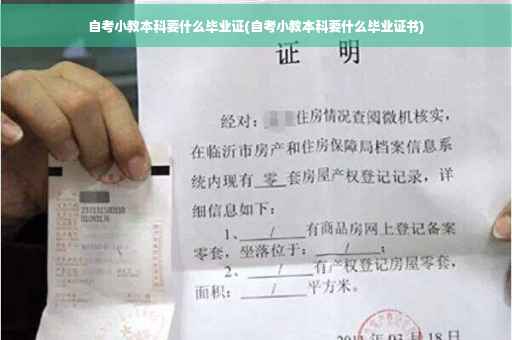 自考小教本科要什么毕业证(自考小教本科要什么毕业证书)
证 明
经对: 住房情况查阅微机核实,
在临沂市房产和住房保障局档案信息系
统内现有 零 套房屋产权登记记录, 详
细信息如下:
1、 / 有商品房网上登记备案
零套, 坐落位于: / ;
2、 / 有产权登记房屋零套,
面积: / 平方米。
03 月 18 日